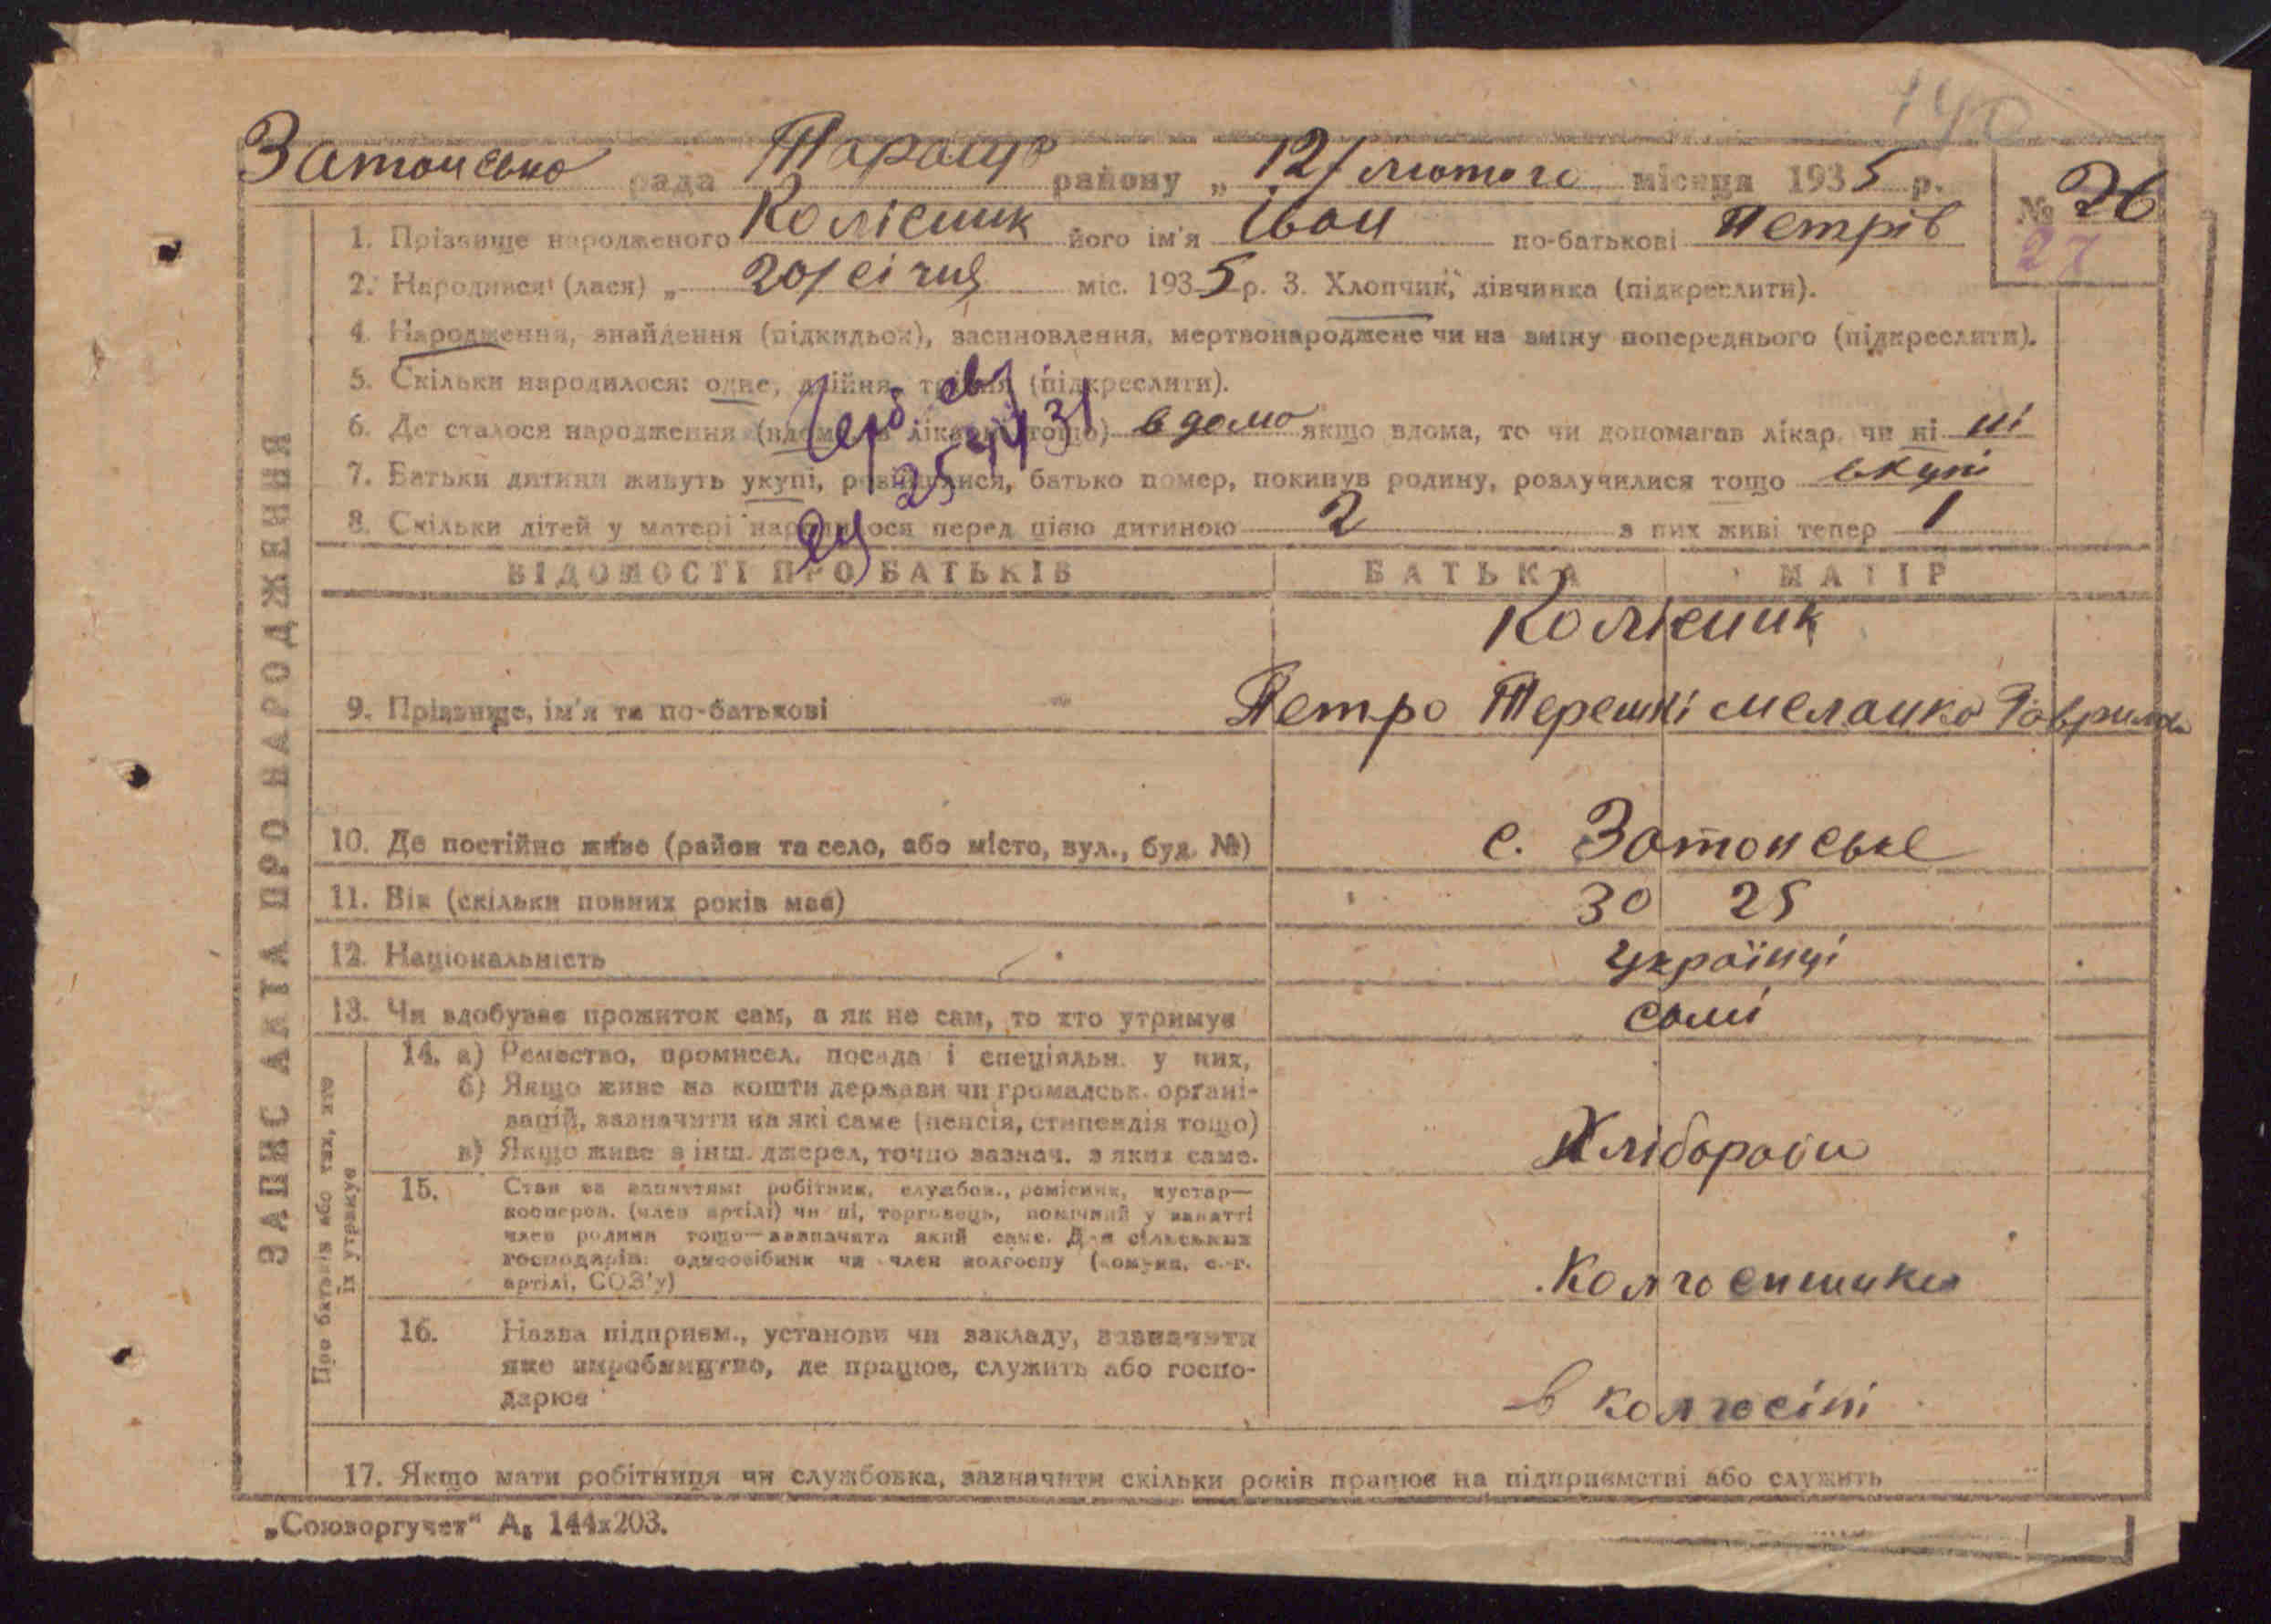 140
Затонсько рада Тараща району „ 12/ лютого місяця 1935 р.
№ 26
27
1. Прізвище народженого Колісник його ім'я Іван по-батькові Петрів
2. Народився (лася) „ 20/січня міс. 1935 р. 3. Хлопчик, дівчинка (підкреслити).
4. Народження, знайдення (підкидьок), засиновлення, мертвонароджене чи на зміну попереднього (підкреслити).
5. Скільки народилося: одне, двійня, трійня (підкреслити).
6. Де сталося народження (вдома, в лікарні тощо) в домо якщо вдома, то чи допомагав лікар, чи ні ні
7. Батьки дитини живуть укупі, розійшлися, батько помер, покинув родину, розлучилися тощо вкупі
8. Скільки дітей у матері народилося перед цією дитиною 2 з них живі тепер 1
ВІДОМОСТІ ПРО БАТЬКІВ БАТЬКА МАТІР
Колісник
9. Прізвище, ім'я та по-батькові Петро Терешкі Меланка Гаврилова
10. Де постійно живе (район та село, або місто, вул., буд. №) с. Затонське
11. Вік (скільки повних років має) 30 25
12. Національність українці
13. Чи здобуває прожиток сам, а як не сам, то хто утримує самі
14. а) Ремество, промисел, посада і спеціяльн. у них,
б) Якщо живе на кошти держави чи громадськ. органі-
зацій, зазначити на які саме (пенсія, стипендія тощо)
в) Якщо живе з інш. джерел, точно зазнач. з яких саме.
Хлібороби
15. Стан за заняттям: робітник, службов., ремісник, кустар—
коопероv. (член артілі) чи ні, торговець, помічний у занятті
член родини тощо—зазначити який саме. Для сільських
господарів: одноосібник чи член колгоспу (комуни, с.-г.
артілі, СОЗ'у)
Колгоспники
16. Назва підприєм., установи чи закладу, зазначити
яке виробництво, де працює, служить або госпо-
дарює
в колгоспі
17. Якщо мати робітниця чи службовка, зазначити скільки років працює на підприємстві або служить
ЗАПИС АКТА ПРО НАРОДЖЕННЯ
Про батьків або тих, хто
їх утримує
„Союзоргучет" А₅ 144х203.